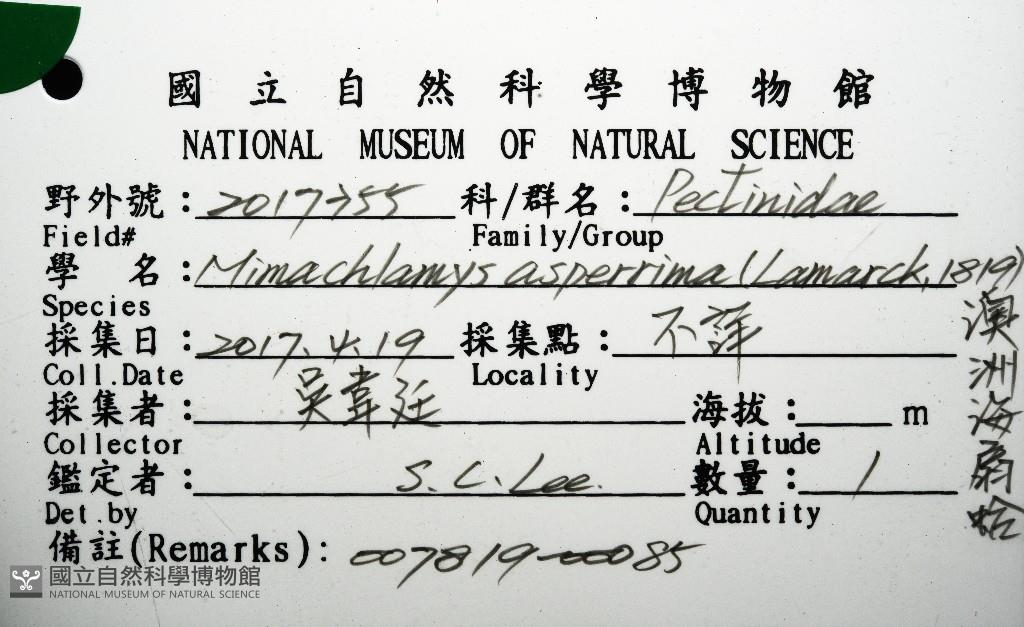 國立自然科學博物館
NATIONAL MUSEUM OF NATURAL SCIENCE
野外號: 2017-755 科/群名: Pectinidae
Field# Family/Group
學 名: Mimachlamys asperrima (Lamarck, 1819)
Species
採集日: 2017.4.19 採集點: 不詳
Coll.Date Locality
採集者: 吳韋廷 海拔: m
Collector Altitude
鑑定者: S.C.Lee. 數量: 1
Det.by Quantity
備註(Remarks): 007819-00085
澳洲海扇蛤
國立自然科學博物館
NATIONAL MUSEUM OF NATURAL SCIENCE